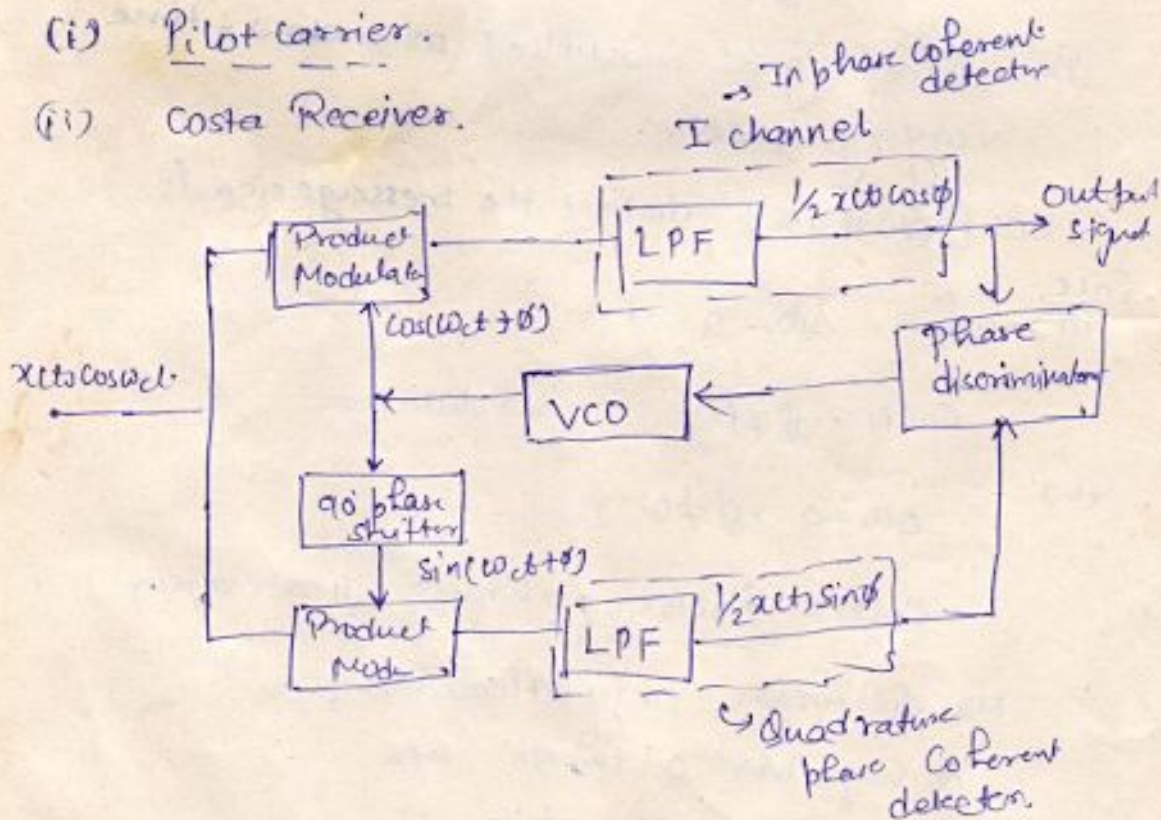 (i) Pilot carrier.
(ii) Costa Receiver.
→ In phase coherent
detector
I channel
Product
Modulator
LPF
1/2 x(t) cosϕ
Output
Signal
cos(ωct+ϕ)
x(t) cosωct.
VCO
phase
discriminator
90° phase
shifter
sin(ωct+ϕ)
Product
Modu
LPF
1/2 x(t) sinϕ
↪ Quadrature
phase Coherent
detector.